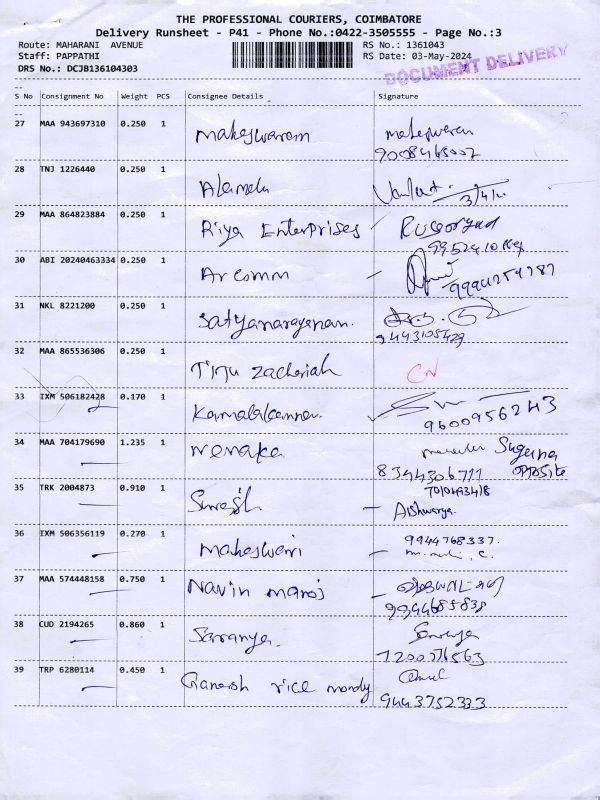 THE PROFESSIONAL COURIERS, COIMBATORE
Delivery Runsheet - P41 - Phone No.:0422-3505555 - Page No.:3
Route: MAHARANI AVENUE RS No.: 1361043
Staff: PAPPATHI RS Date: 03-May-2024
DRS No.: DCJB136104303
DOCUMENT DELIVERY
S No Consignment No Weight PCS Consignee Details Signature
27 MAA 943697310 0.250 1 Maheswaram
28 TNJ 1226440 0.250 1 Alamelu
29 MAA 864823884 0.250 1 Riya Enterprises
30 ABI 20240463334 0.250 1 Arcomm
31 NKL 8221200 0.250 1 Satyanarayanan.
9443105429
32 MAA 865536306 0.250 1 Tiju Zachariah CN
33 IXM 506182428 0.170 1 Kamalakannan.
9600956243
34 MAA 704179690 1.235 1 Menaka Suguna
8344306711 opposite
35 TRK 2004873 0.910 1 Suresh
Aishwarya.
36 IXM 506356119 0.270 1 Maheswari 9944768337.
37 MAA 574448158 0.750 1 Navin manoj
38 CUD 2194265 0.860 1 Saranya. Saranya
39 TRP 6280114 0.450 1 Ganesh rice mandy
9443752333